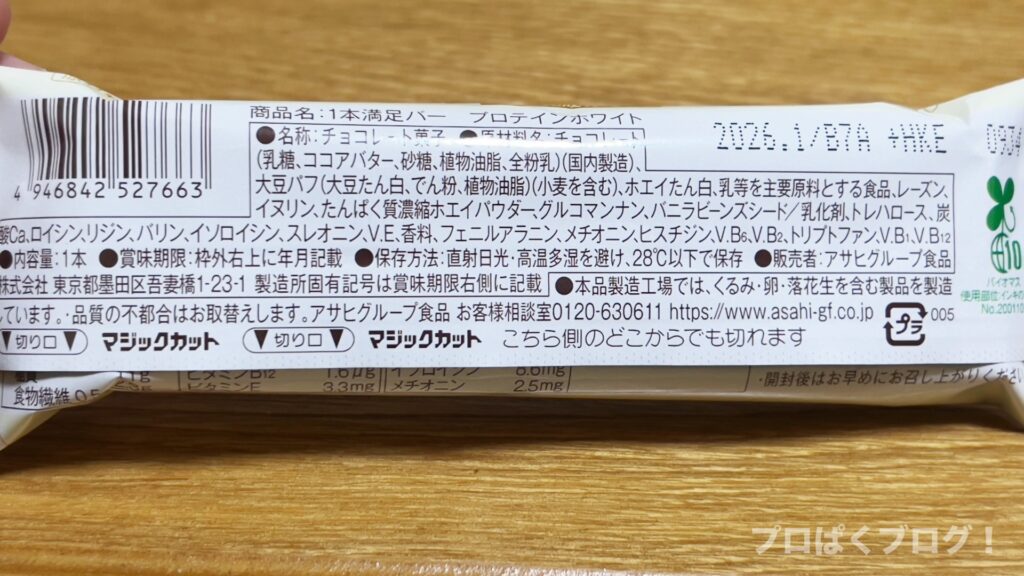 商品名:1本満足バー プロテインホワイト
●名称:チョコレート菓子 ●原材料名:チョコレート
2026.1/B7A +HKE
093
(乳糖、ココアバター、砂糖、植物油脂、全粉乳)(国内製造)、
大豆パフ(大豆たん白、でん粉、植物油脂)(小麦を含む)、ホエイたん白、乳等を主要原料とする食品、レーズン、
イヌリン、たんぱく質濃縮ホエイパウダー、グルコマンナン、バニラビーンズシード/乳化剤、トレハロース、炭
酸Ca、ロイシン、リジン、バリン、イソロイシン、スレオニン、V.E、香料、フェニルアラニン、メチオニン、ヒスチジン、V.B6、V.B2、トリプトファン、V.B1、V.B12
4 946842 527663
●内容量:1本 ●賞味期限:枠外右上に年月記載 ●保存方法:直射日光・高温多湿を避け、28℃以下で保存 ●販売者:アサヒグループ食品
株式会社 東京都墨田区吾妻橋1-23-1 製造所固有記号は賞味期限右側に記載
●本品製造工場では、くるみ・卵・落花生を含む製品を製造
しています。・品質の不都合はお取替えします。アサヒグループ食品 お客様相談室0120-630611 https://www.asahi-gf.co.jp
プラ
005
バイオマス
使用部位:インキの
No.200110
10
▼切り口▼ マジックカット ▼切り口▼ マジックカット こちら側のどこからでも切れます
ビタミンB12 1.6μg イソロイシン 8.6mg
食物繊維 ビタミンE 3.3mg メチオニン 2.5mg
・開封後はお早めにお召し上がりくださ
プロぱくブログ!